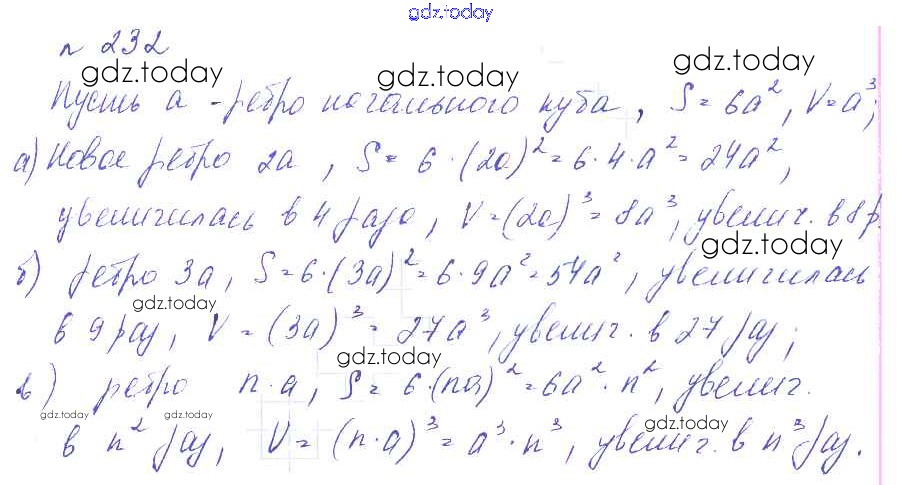 gdz.today
n 232
gdz.today gdz.today gdz.today
Пусть a - ребро начального куба, S = 6a², V = a³;
а) Новое ребро 2a, S = 6 · (2a)² = 6 · 4 · a² = 24a²,
увеличилась в 4 раза, V = (2a)³ = 8a³, увелич. в 8 р.
gdz.today
б) ребро 3a, S = 6 · (3a)² = 6 · 9a² = 54a², увеличилась
gdz.today
в 9 раз, V = (3a)³ = 27a³, увелич. в 27 раз;
gdz.today
в) ребро n · a, S = 6 · (na)² = 6a² · n², увелич.
gdz.today gdz.today gdz.today
в n² раз, V = (n · a)³ = a³ · n³, увелич. в n³ раз.